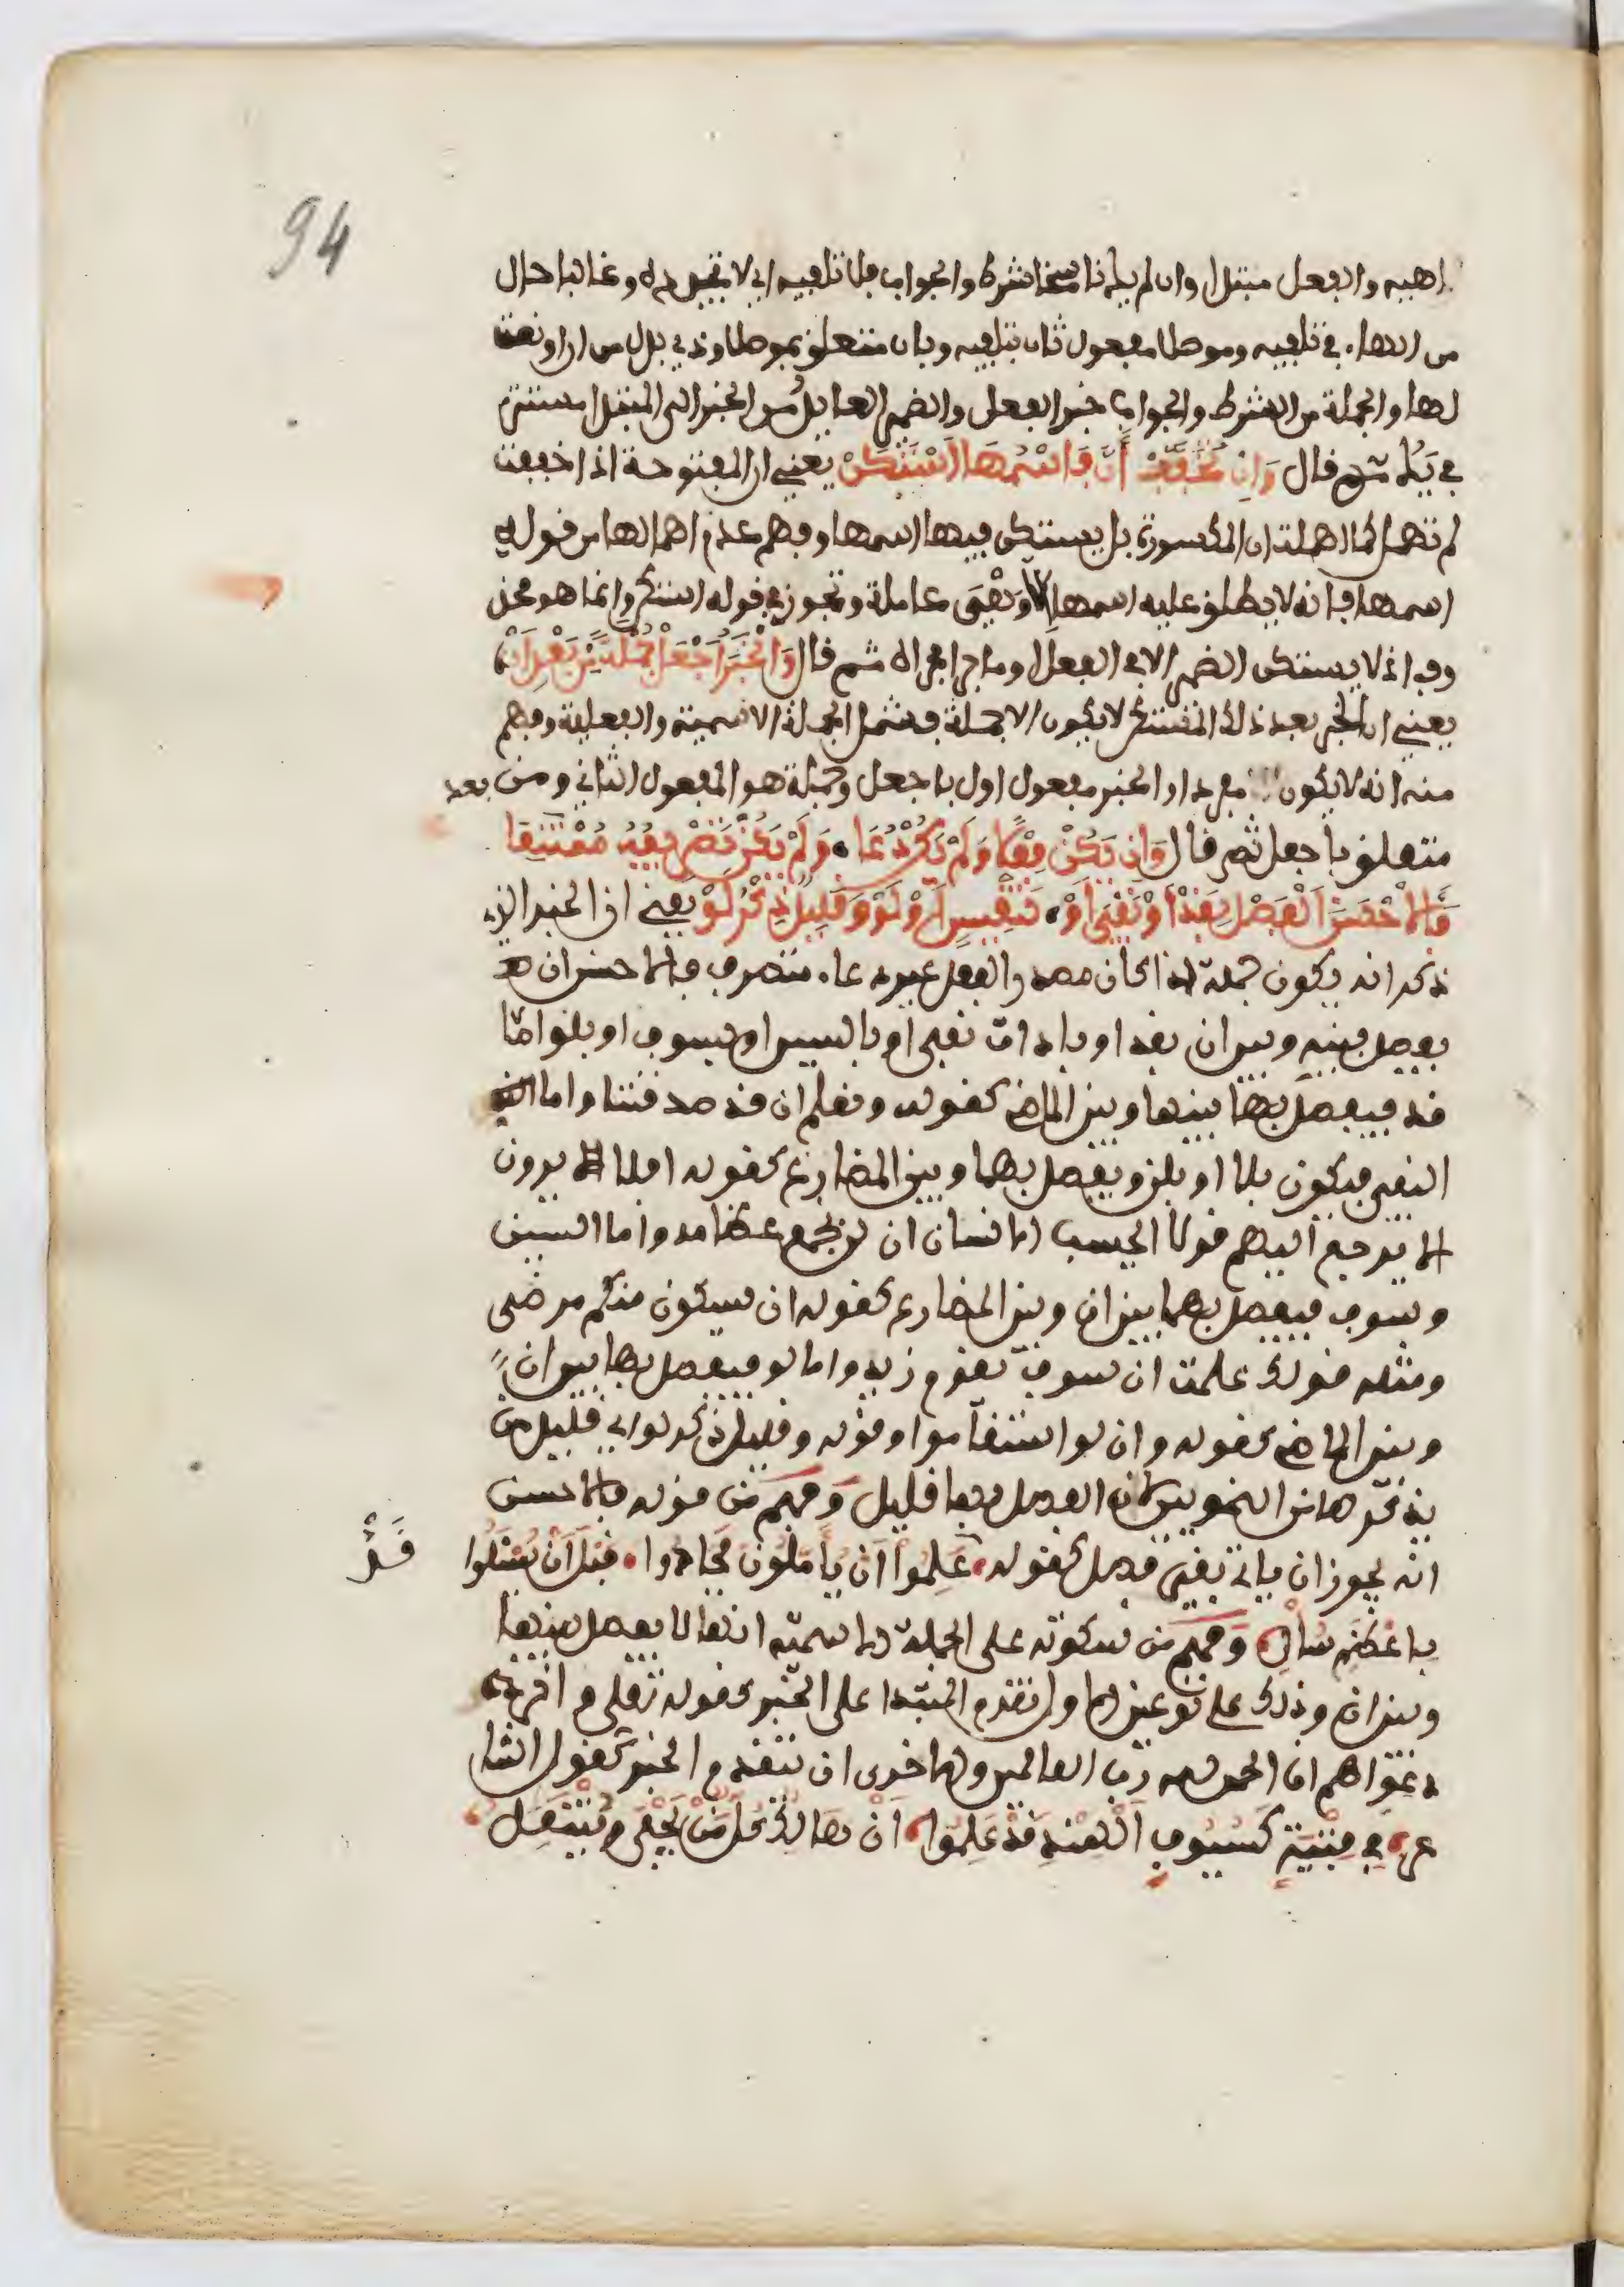 94
والفعل مبتدا وان لم يك ناسخا شرط والجواب فلا تلفيه اي لا تجده وغالبا حال
من الهاء في تلفيه وموصلا مفعول ثان بتلفيه وبان متعلق بموصلا وذي بدل من ان او نعت
لها والجملة من الشرط والجواب خبر الفعل والضمير العايد من الخبر الى المبتدا مستتر
في يك ثم قال وَإِن تُخَفَّفْ أَنَّ فَاسْمُهَا اسْتَكَنْ يعني ان المفتوحة اذا خففت
لم تهمل كما اهملت ان المكسورة بل يستكن فيها اسمها وفهم عدم اهمالها من قوله
اسمها فانه لا يطلق عليه اسمها الا وَهْيَ عاملة وتجوز في قوله استكن وانما هو محذ
وف اذ لا يستكن الضمير الا في الفعل او ما جرا مجراه ثم قال وَالْخَبَرَ اجْعَلْ جُمْلَةً مِّنْ بَعْدِ أَنْ
يعني ان الخبر بعد ذلك المستكن لا يكون الا جملة فشمل الجملة الاسمية والفعلية وفهم
منه انه لا يكون مفردا والخبر مفعول اول باجعل وجملة هو المفعول الثاني ومن بعد
متعلق باجعل ثم قال وَإِن يَكُنْ فِعْلًا وَلَمْ يَكُنْ دُعَا وَلَمْ يَكُنْ تَصْرِيفُهُ مُمْتَنِعَا
فَالاحْسَنُ الْفَصْلُ بِقَدْ أَوْ نَفْيٍ أَوْ تَنْفِيسٍ أَوْ لَوْ وَقَلِيلٌ ذِكْرُ لَوْ يعني ان الخبر الذي
ذكر انه يكون جملة اذا كان مصدرا بفعل غير دعاء متصرف فالاحسن ان
يفصل بينه وبين ان بقد او باداة نفي او بالسين او بسوف او بلو اما
قد فيفصل بها بينها وبين الماضي كقوله ونعلم ان قد صدقتنا واما
النفي فيكون بلا او بلن ويفصل بهما وبين المضارع كقوله افلا يرون
الا يرجع اليهم قولا ايحسب الانسان ان لن نجمع عظامه واما السين
وسوف فيفصل بهما بين ان وبين المضارع كقوله ان سيكون منكم مرضى
ومثله قولك علمت ان سوف يقوم زيد واما لو فيفصل بها بين ان
وبين الماضي كقوله وان لو استقاموا وقوله وقليل ذكر لو اي قليل من
يذكرها من النحويين لان الفصل بها قليل وفهم من قوله فالاحسن
انه يجوز ان ياتي بغير فصل كقوله عَلِمُوا أَنْ يُأَمَّلُونَ فَجَادُوا قَبْلَ أَنْ يُسْئَلُوا
باعظم سال وفهم من سكوته على الجملة الاسمية انها لا يفصل بينها
وبين ان وذلك على نوعين الاول تقدم المبتدا على الخبر كقوله تعلى واخر
دعواهم ان الحمد لله رب العالمين والاخرى ان يتقدم الخبر كقول الشا
عر في فِتْيَةٍ كَسُيُوفِ الْهِنْدِ قَدْ عَلِمُوا أَنْ هَالِكٌ كُلُّ مَنْ يَحْفَى وَيَنْتَعِلُ